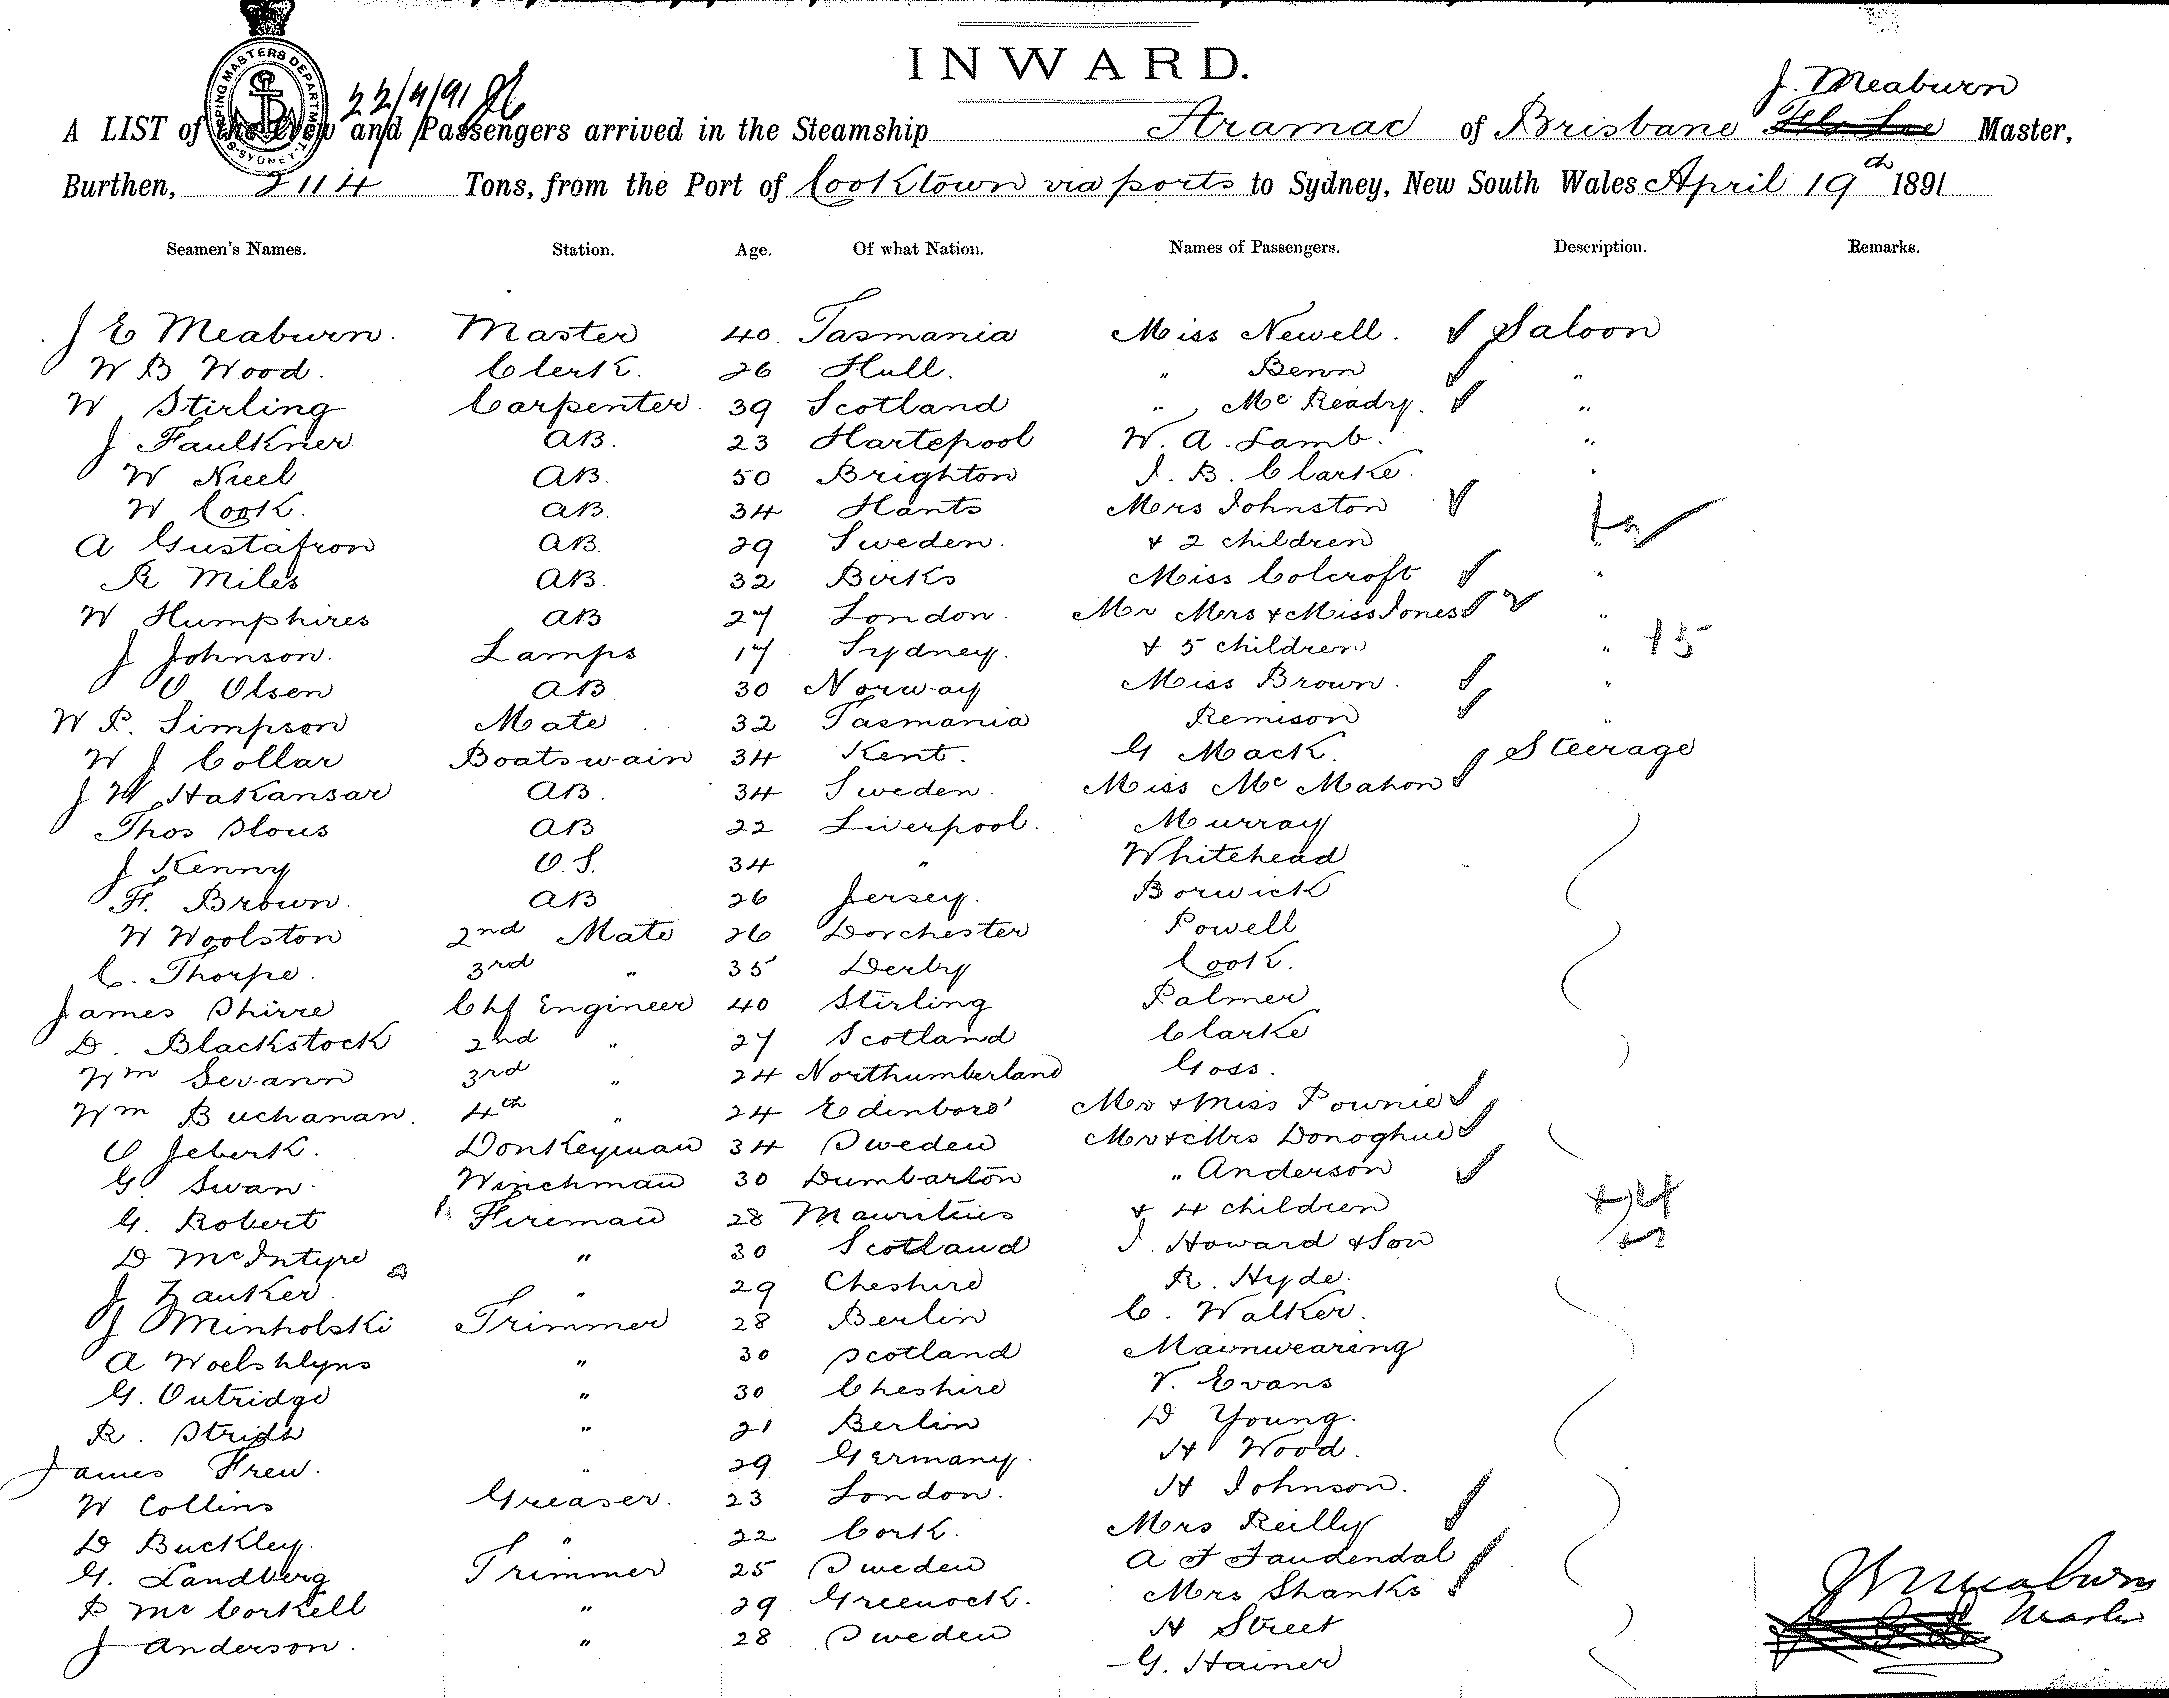 INWARD.
22/4/91
J. Meaburn
A LIST of the Crew and Passengers arrived in the Steamship Aramac of Brisbane Master,
Burthen, 2114 Tons, from the Port of Cooktown via ports to Sydney, New South Wales April 19th 1891
Seamen's Names. Station. Age. Of what Nation. Names of Passengers. Description. Remarks.
J E Meaburn. Master 40 Tasmania Miss Newell. Saloon
W B Wood. Clerk. 26 Hull. " Benn "
W Stirling Carpenter. 39 Scotland " McReady. "
J Faulkner AB. 23 Hartepool W. A. Lamb. "
W Nuel AB. 50 Brighton J. B. Clarke. "
W Cook. AB. 34 Hants Mrs Johnston
A Gustafson AB. 29 Sweden. + 2 children
R Miles AB. 32 Birks Miss Colcroft "
W Humphires AB 27 London. Mr Mrs + Miss Jones "
J Johnson. Lamps 17 Sydney. + 5 children " +5
O Olsen AB 30 Norway Miss Brown. "
W P. Simpson Mate 32 Tasmania Remison "
W J Collar Boatswain 34 Kent. G Mack. Steerage
J W Hakansar AB. 34 Sweden. Miss McMahon
Thos Slous AB 22 Liverpool. Murray
J Kenny O.S. 34 " Whitehead
F. Brown. AB 26 Jersey. Borwick
W Woolston 2nd Mate 26 Dorchester Powell
C. Thorpe. 3rd " 35 Derby Cook.
James Shirre Chf Engineer 40 Stirling Palmer
D. Blackstock 2nd " 27 Scotland Clarke
Wm Sevann 3rd " 24 Northumberland Goss.
Wm Buchanan. 4th " 24 Edinboro' Mr + Miss Pownie
O Jeberk. Donkeyman 34 Sweden Mr + Mrs Donoghue
G Swan. Winchman 30 Dumbarton " Anderson
G. Robert Fireman 28 Mauritius + 4 children +4
D McIntyre " 30 Scotland J. Howard + Son
J Zauker. " 29 Cheshire R. Hyde.
J Minholski Trimmer 28 Berlin C. Walker.
A Woelshlyns " 30 Scotland Mainwearing
G. Outridge " 30 Cheshire V. Evans
R. Stridh " 21 Berlin D Young.
James Frew. " 29 Germany. H Wood.
W Collins Greaser. 23 London. H Johnson.
D Buckley. " 22 Cork. Mrs Reilly
G. Landberg Trimmer 25 Sweden A J Faudendal
P McCorkell " 29 Greenock. Mrs Shanks
J Anderson. " 28 Sweden H Street
G. Hainer
J E Meaburn
Master